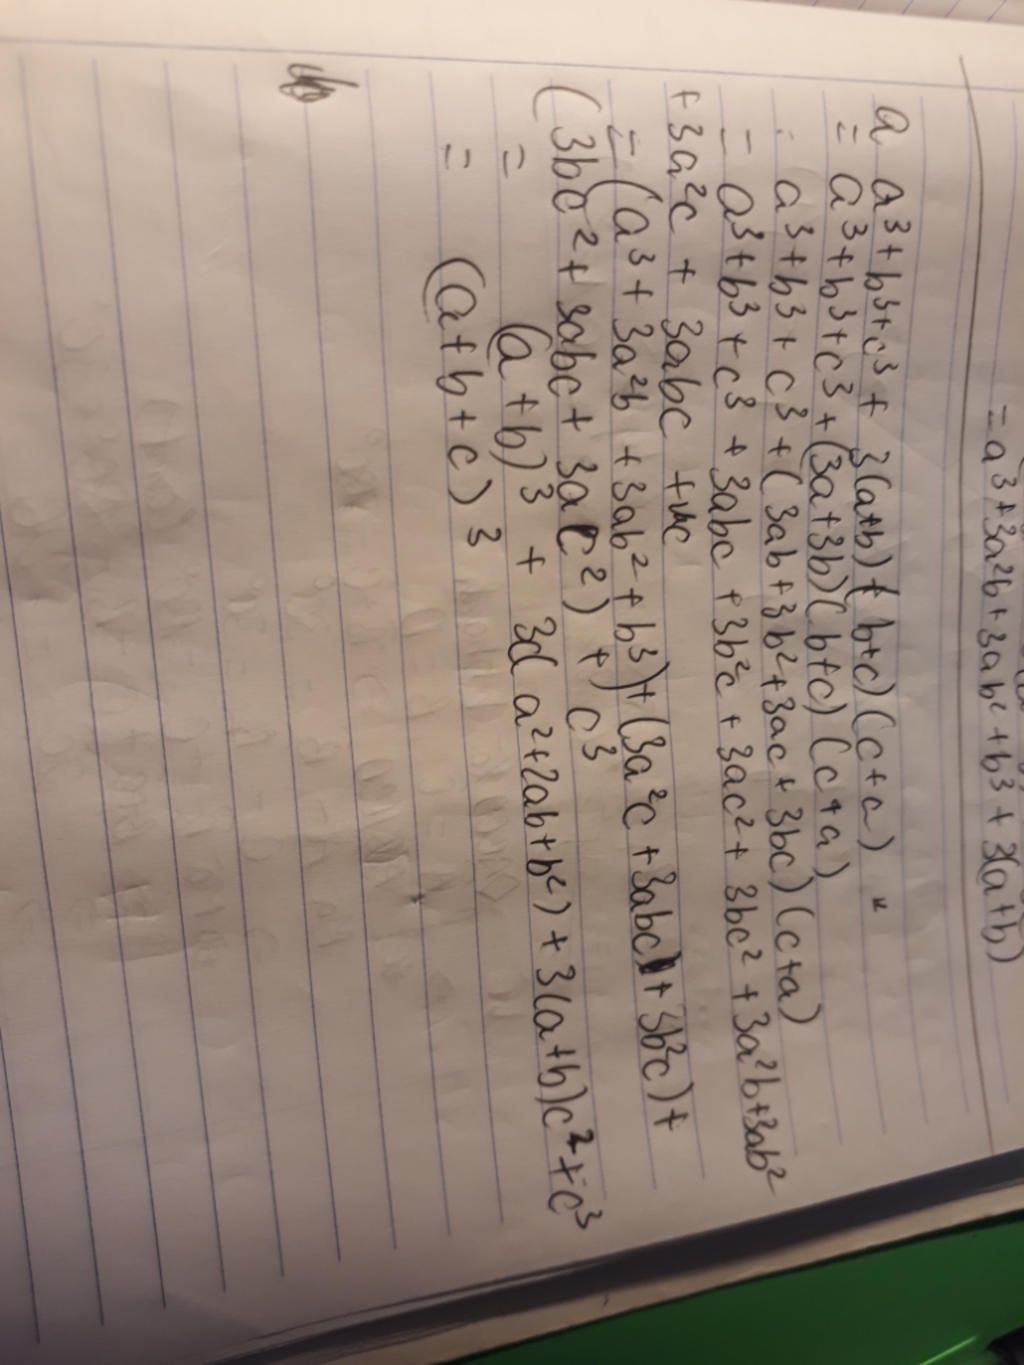 = a³ + 3a²b + 3ab² + b³ + 3(a+b)
a a³ + b³ + c³ + 3(a+b)+(b+c)(c+a)
= a³ + b³ + c³ + (3a+3b)(b+c)(c+a)
a³ + b³ + c³ + (3ab + 3b² + 3ac + 3bc)(c+a)
- a³ + b³ + c³ + 3abc + 3b²c + 3ac² + 3bc² + 3a²b + 3ab²
+ 3a²c + 3abc
= (a³ + 3a²b + 3ab² + b³) + (3a²c + 3abc + 3b²c) +
(3bc² + 3abc + 3ac²) + c³
= (a+b)³ + 3c( a² + 2ab + b²) + 3(a+b)c² + c³
= (a + b + c)³